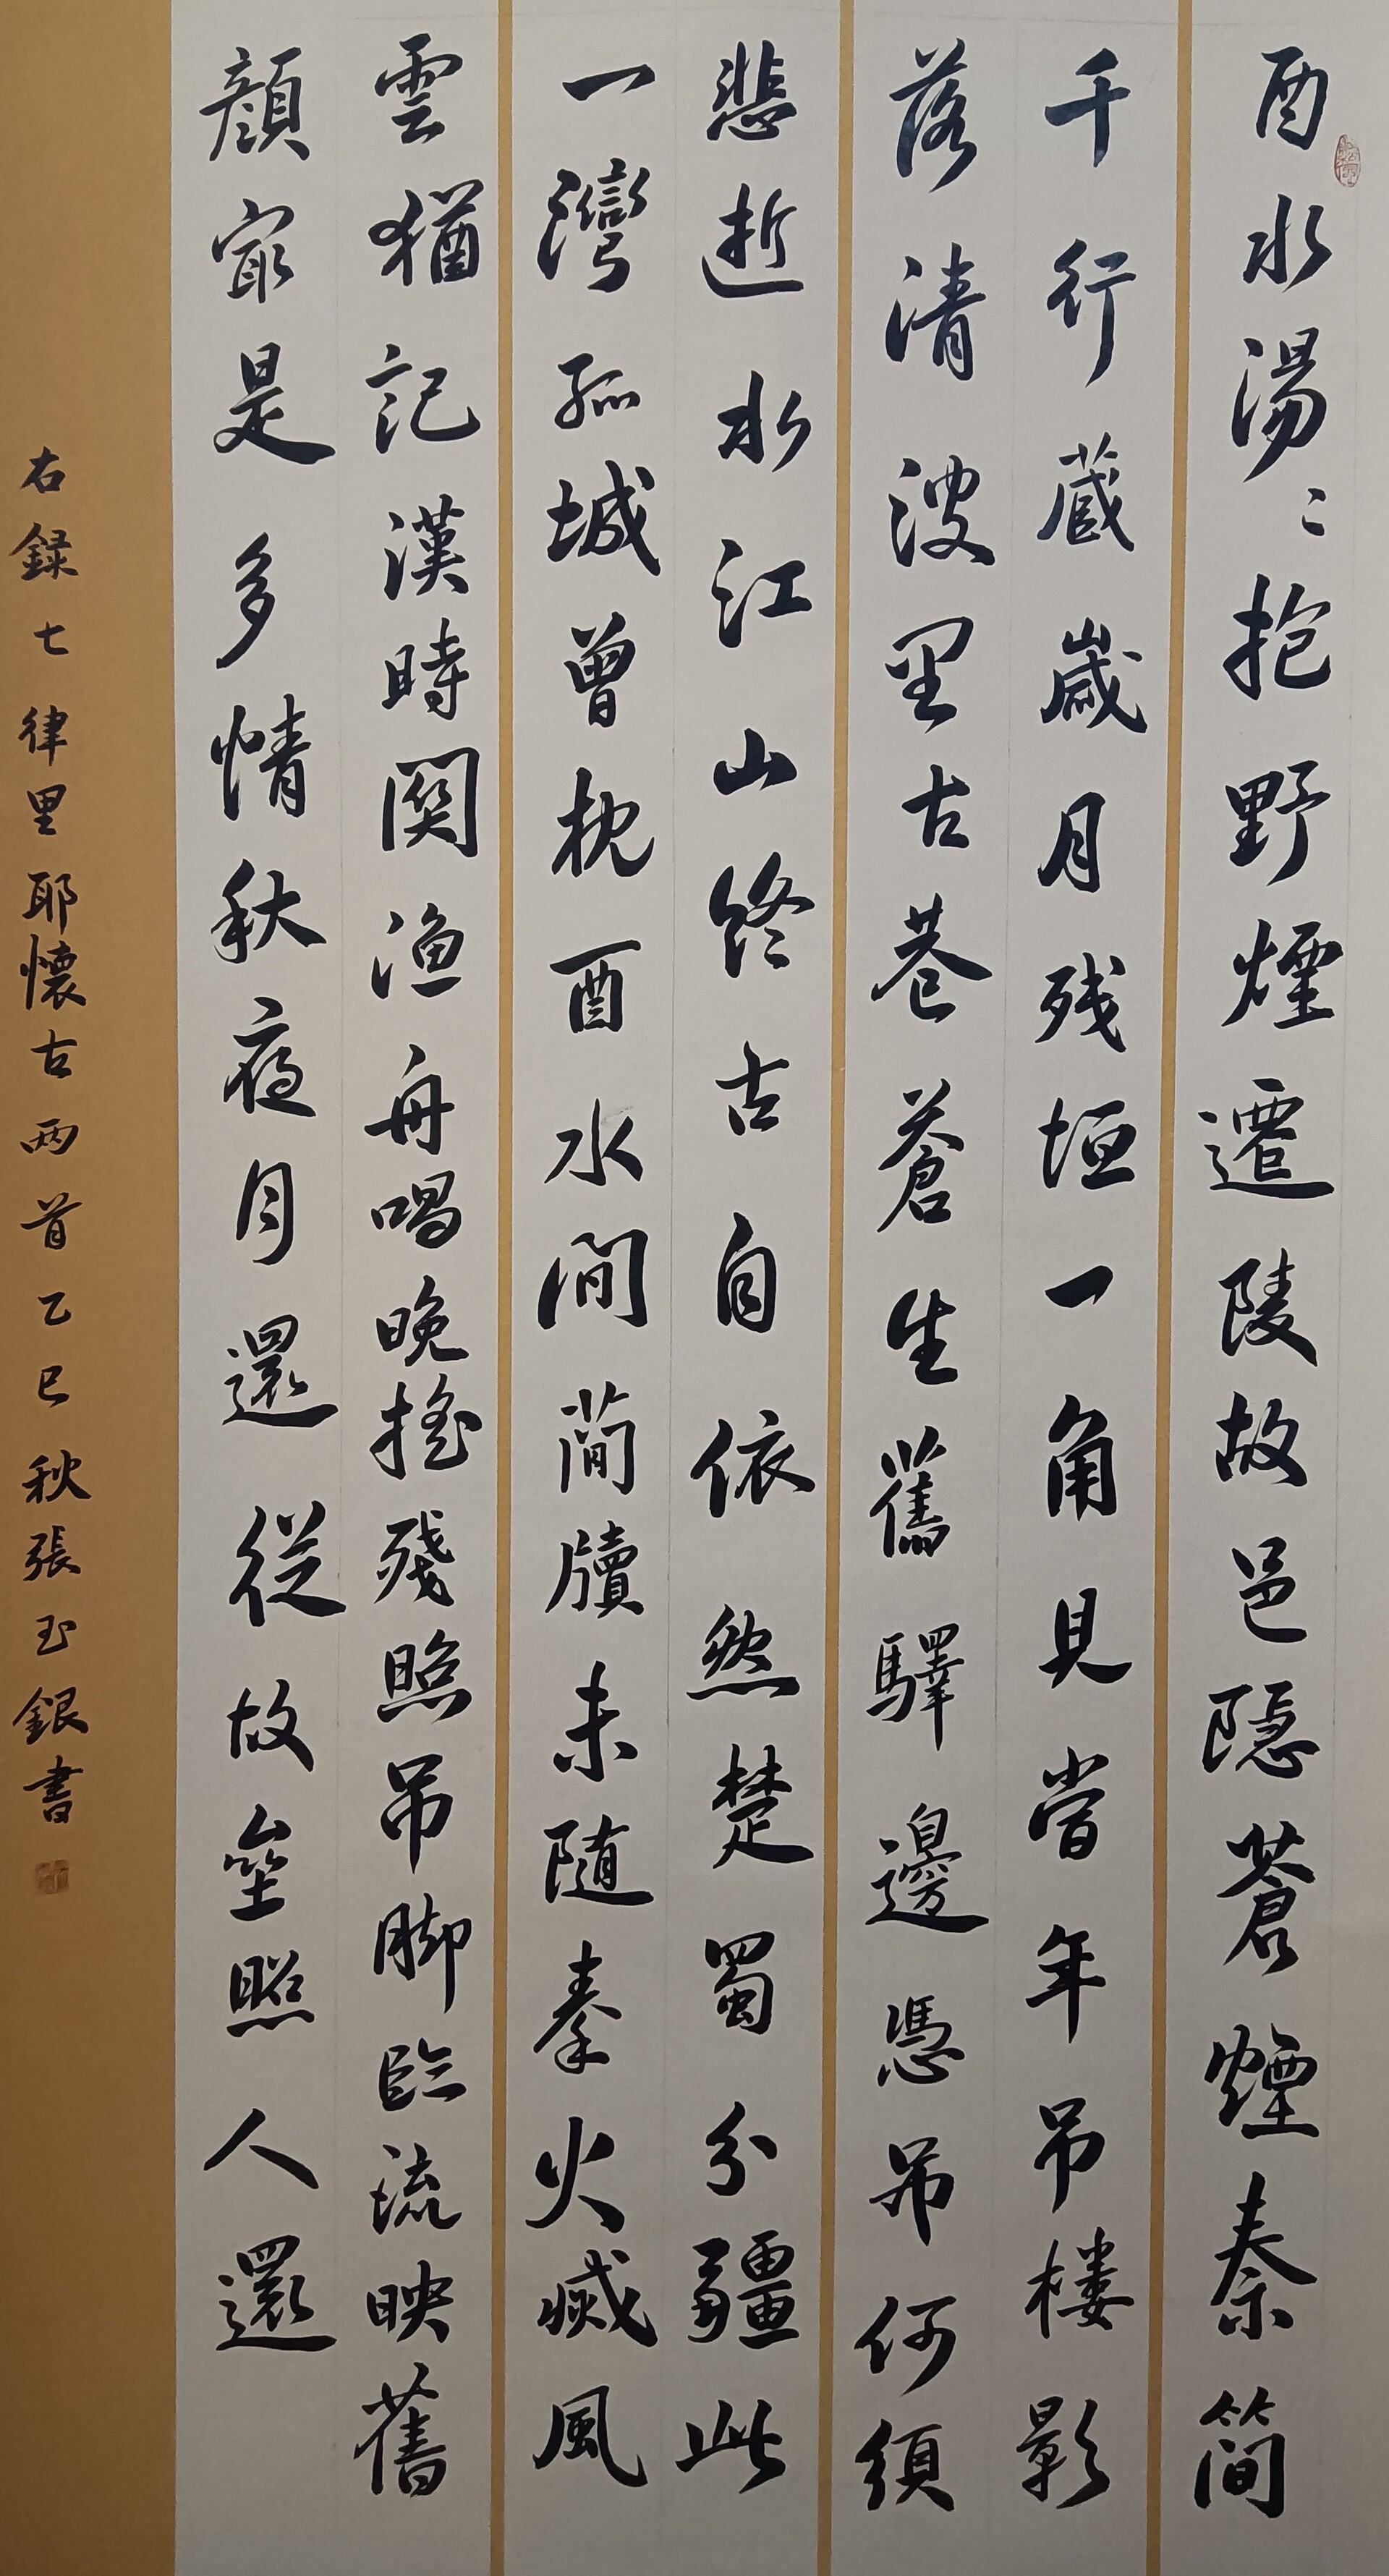 酉水湯〻抱野煙遷陵故邑隱蒼煙秦簡
千行蔵歲月残垣一角見當年吊樓影
落清波里古巷蒼生舊驛邊憑吊何須
悲逝水江山終古自依然楚蜀分疆此
一灣孤城曾枕酉水間簡牘未随秦火滅風
雲猶記漢時関漁舟唱晚搖殘照吊脚臨流映舊
顔冣是多情秋夜月還從故壘照人還
右録七律里耶懷古两首乙巳秋張玉銀書